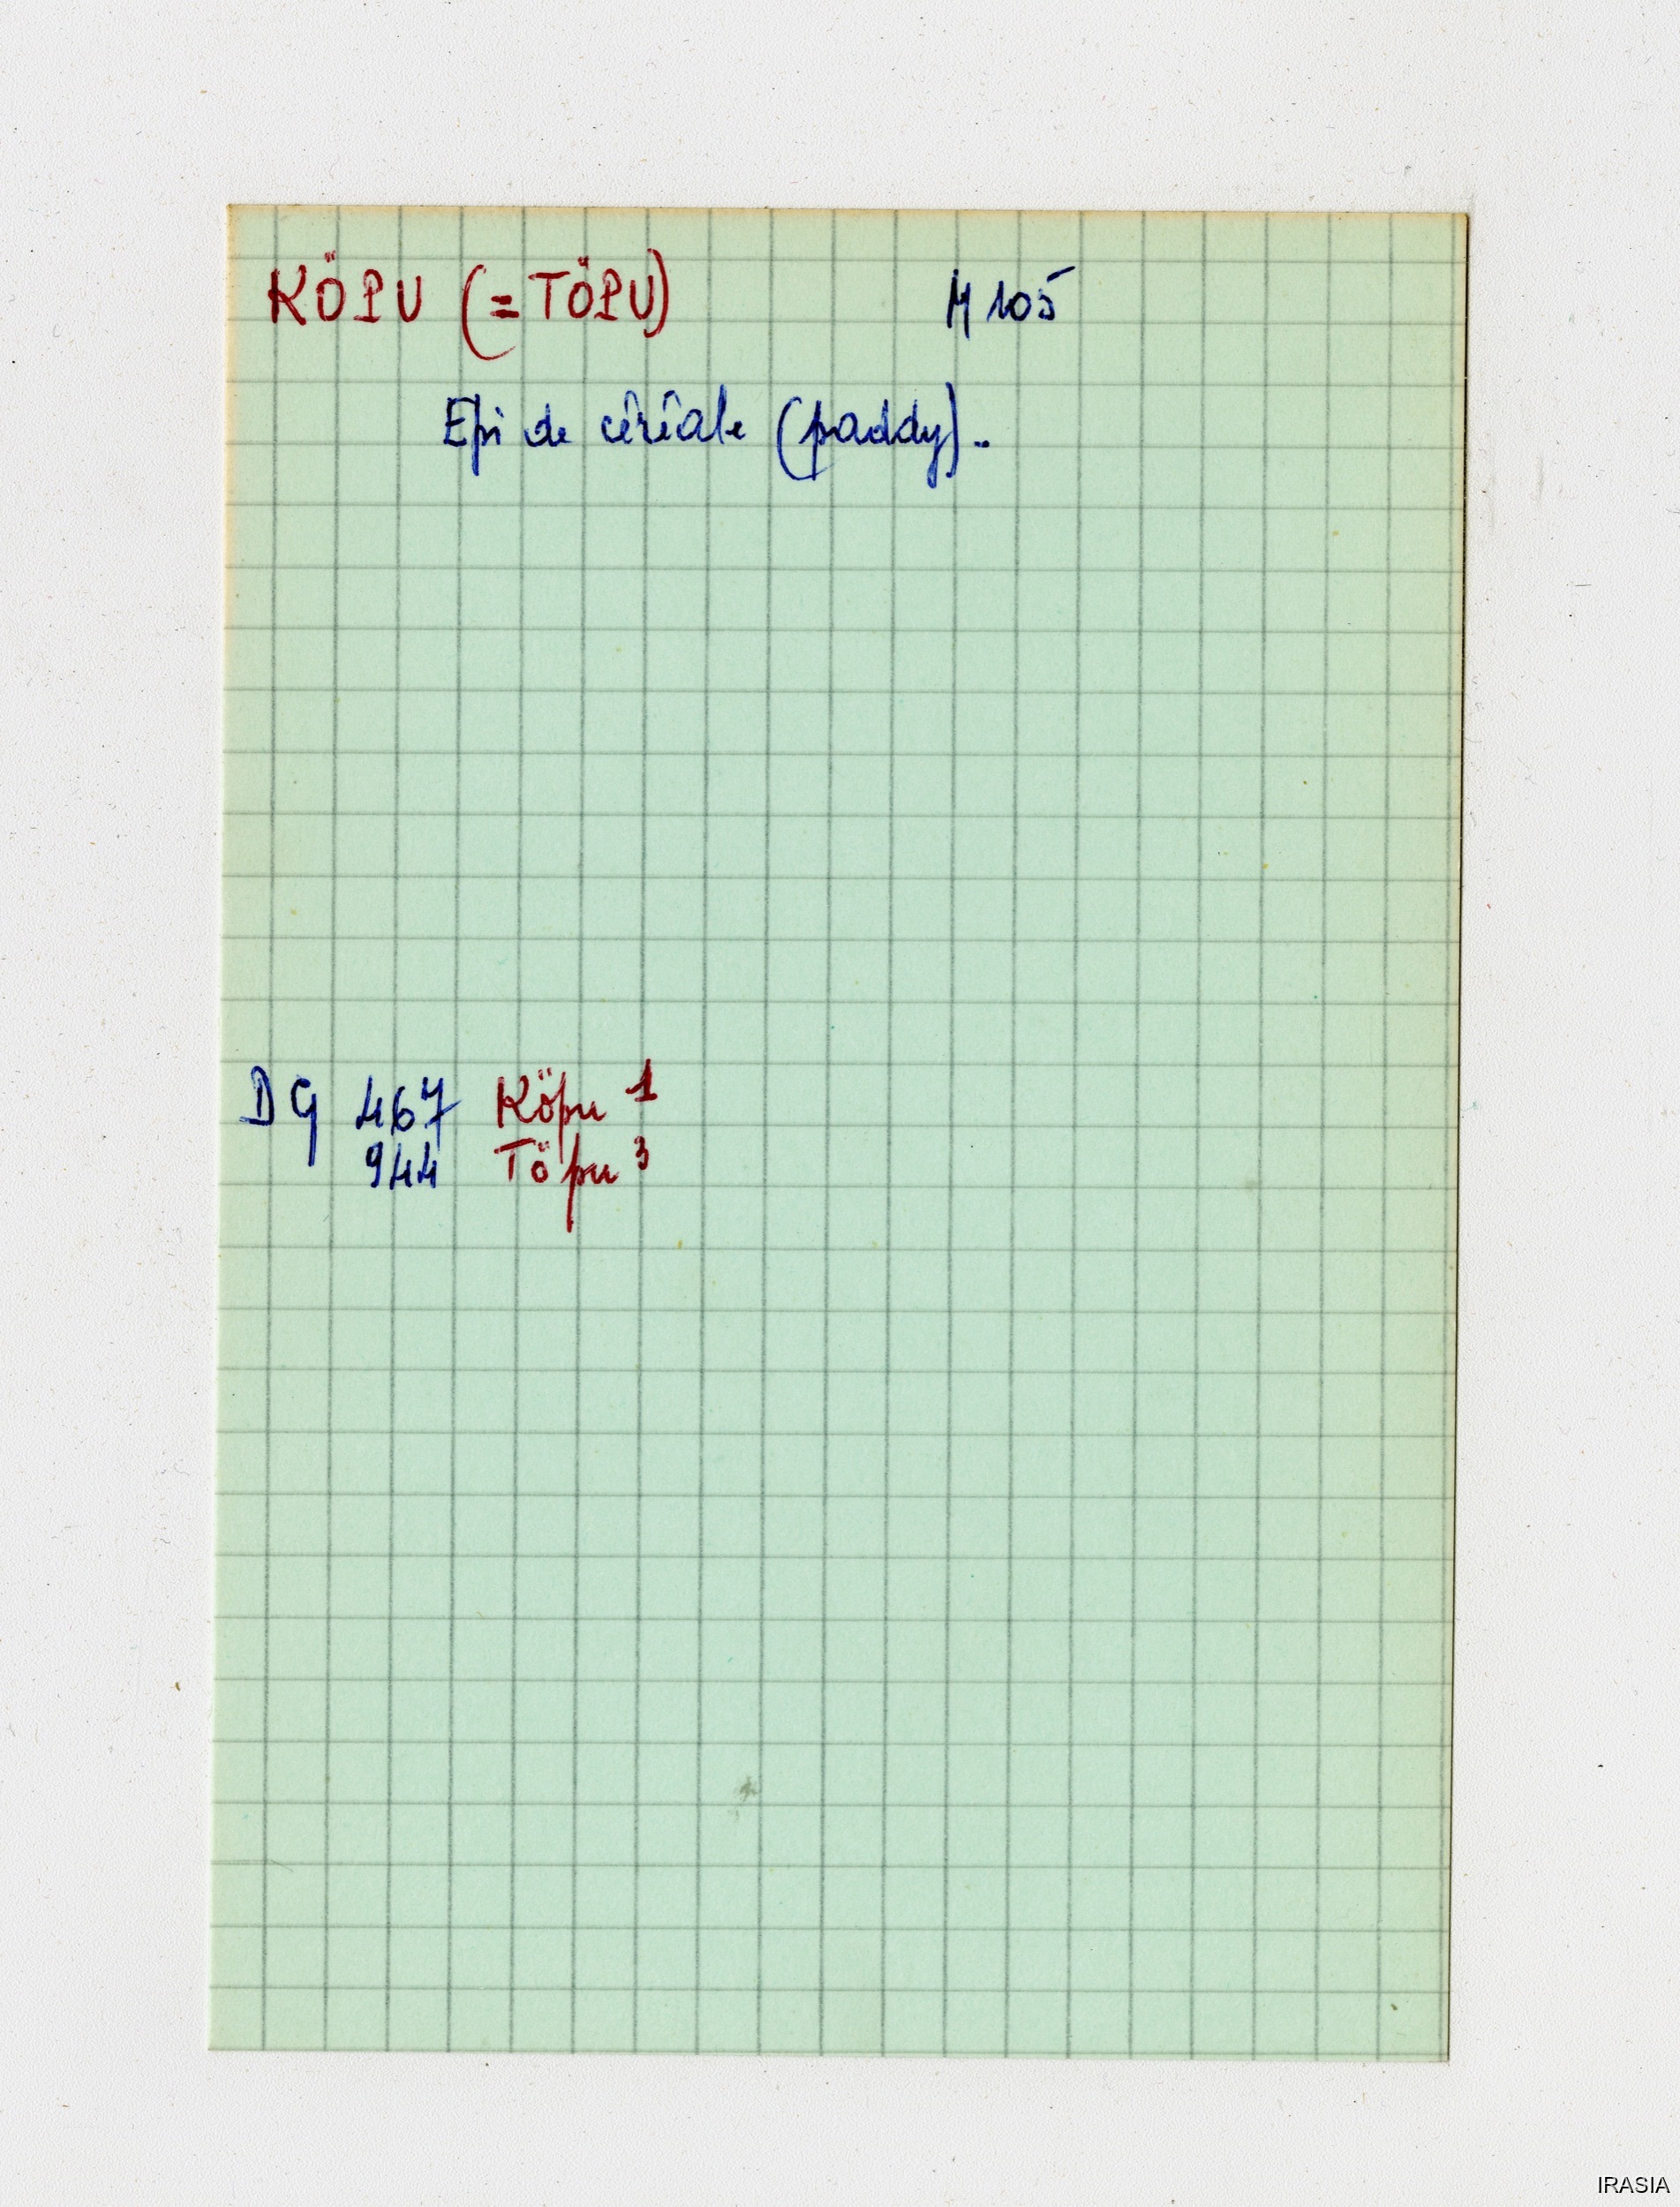 KÖPU (=TÖPU) M 105
Epi de céréale (paddy)..
DG 467 Köpu 1
944 Töpu 3
IRASIA